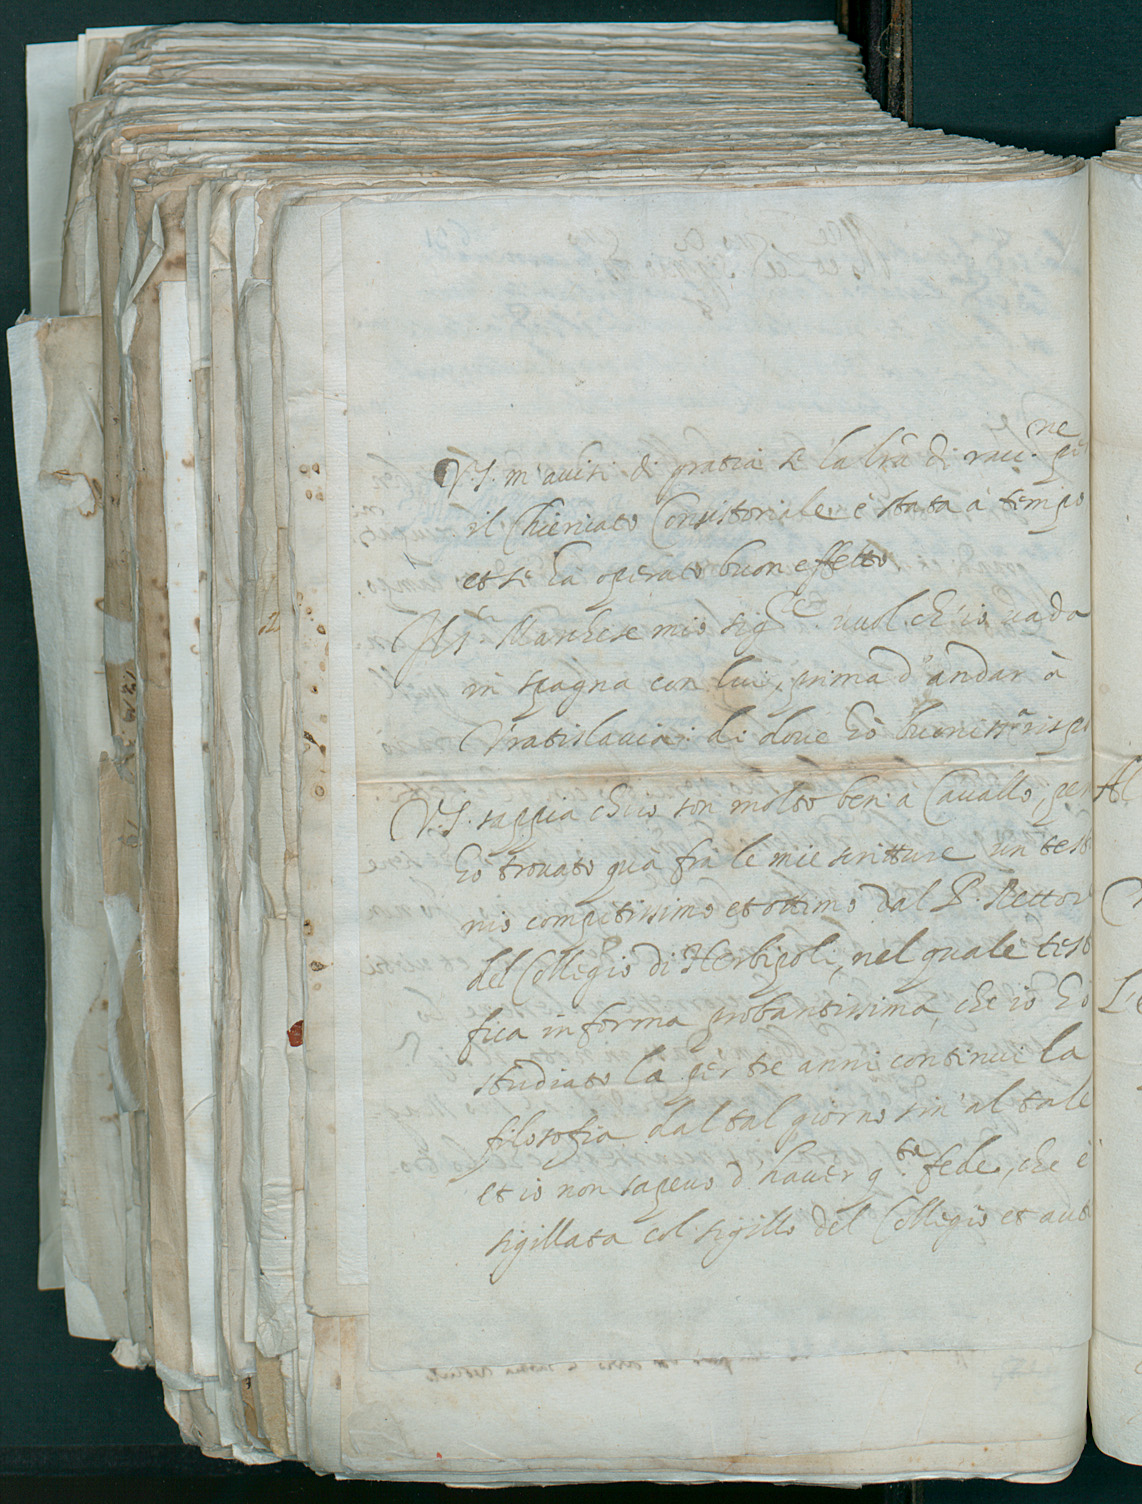 V.S. m'avisi di gratia se la lr̃a di rac.ne per
il Chiericato Consistoriale è stata a tempo
et se ha operato buon effetto
Il S.r Marchese mio sig.re vuol ch'io vada
in spagna con lui, prima d'andar à
Vratislavia: di dove hò buoniss.e rispo
V.S. sappia ch'io son molto ben a Cavallo, per
hò trovato quà frà le mie scritture un testi
nio compitissimo et ottimo dal P. Rettor
del Collegio di Herbipoli, nel quale testi
fica in forma probantissima, che io hò
studiato la per tre anni continui la
filosofia dal tal giorno sin' al tale
et io non sapevo d'haver q.ta fede, che è
sigillata col sigillo del Collegio et aut